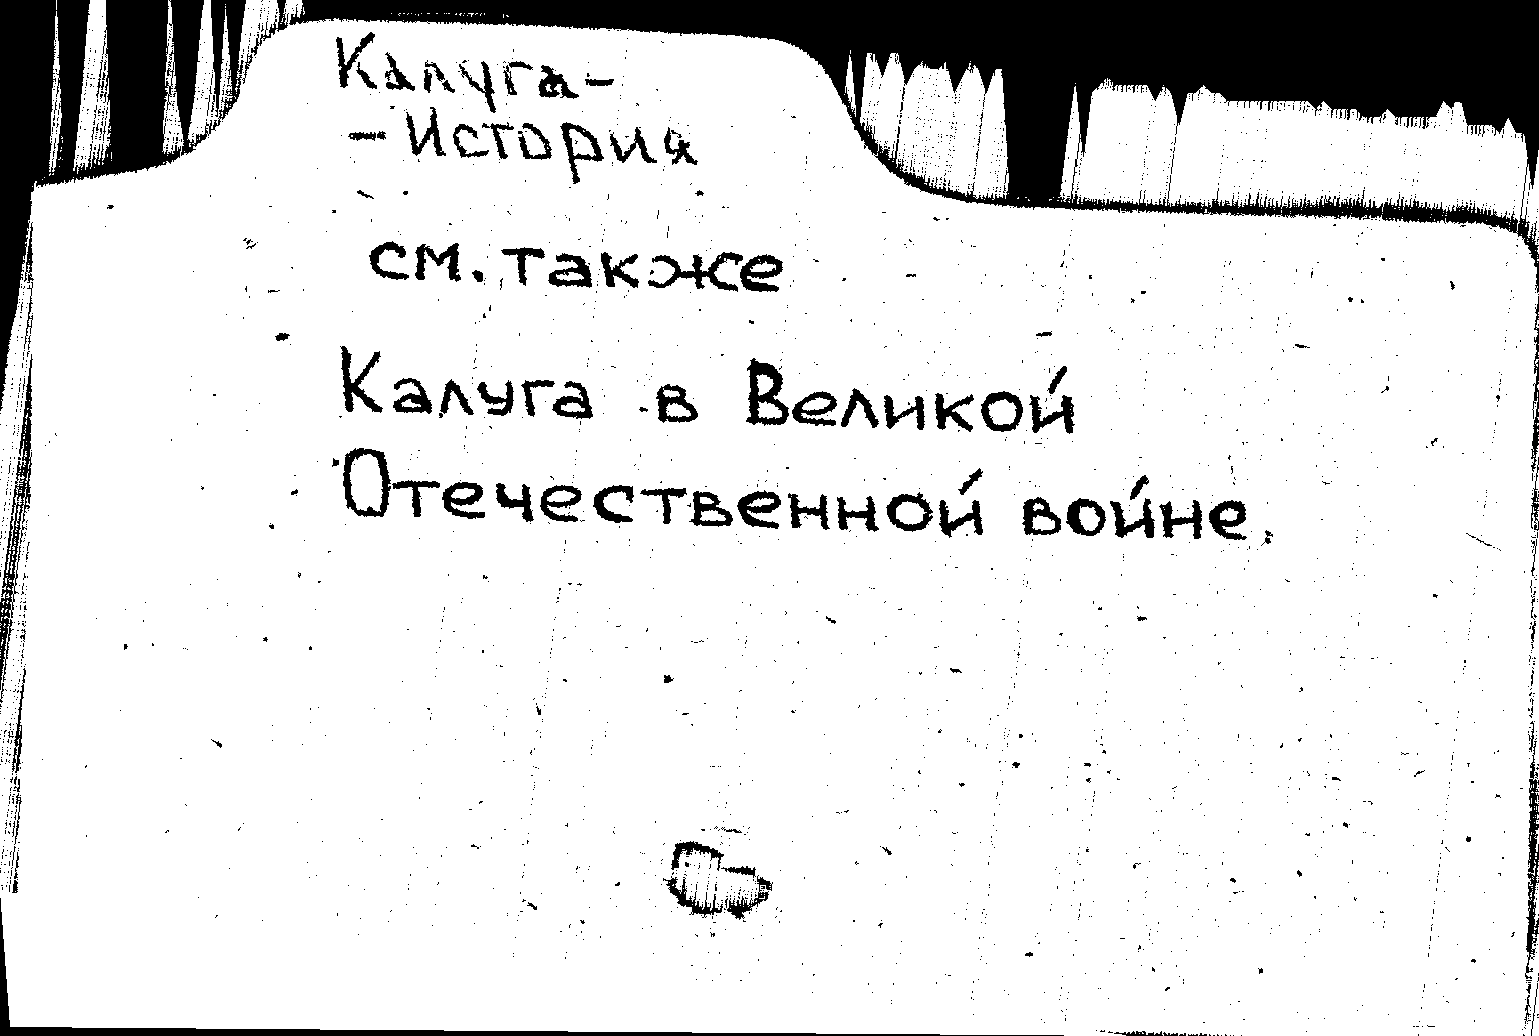 Калуга-
-История
см. также
Калуга в Великой
Отечественной войне.